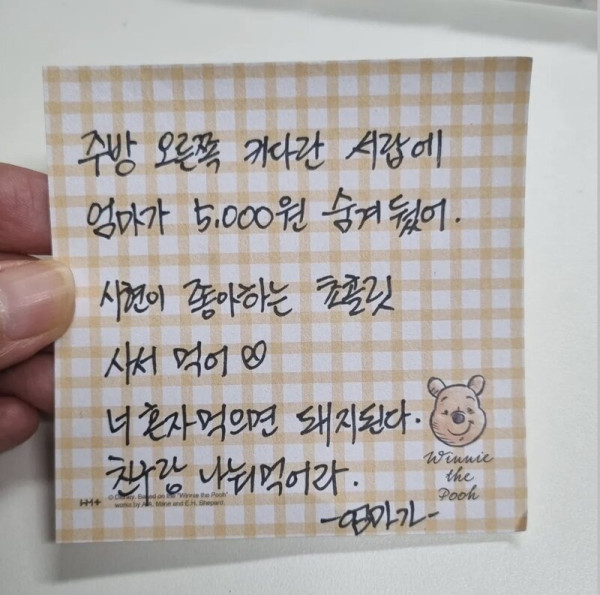 주방 오른쪽 커다란 서랍에
엄마가 5.000원 숨겨 뒀어.
시현이 좋아하는 쵸콜릿
사서 먹어♡
너 혼자먹으면 돼지된다.
친구랑 나눠먹어라.
-엄마가-
Winnie
the
Pooh
© Disney. Based on the "Winnie the Pooh"
works by A.A. Milne and E.H. Shepard.